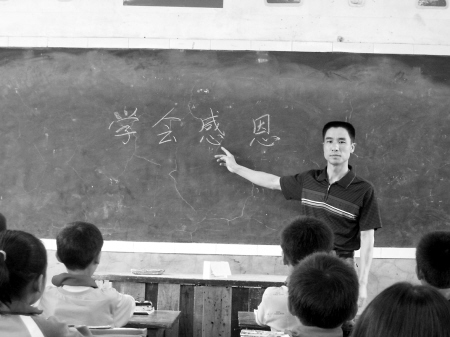 学会感恩